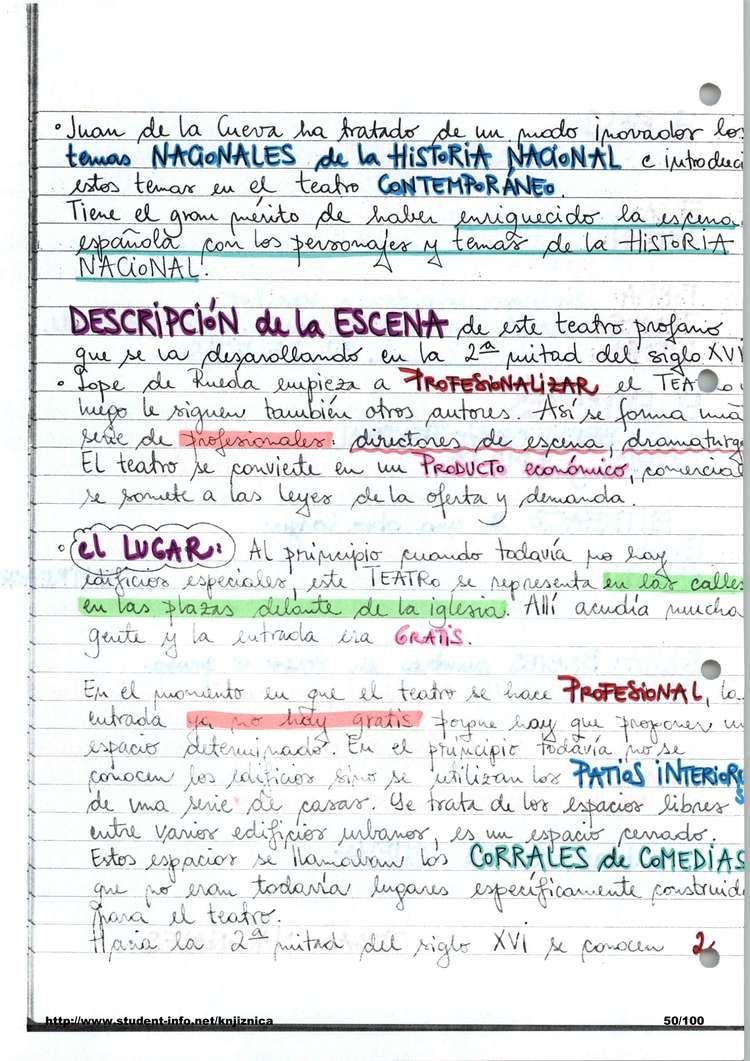 • Juan de la Cueva ha tratado de un modo inovador los
temas NACiONALES de la HiSTORiA NACiONAL e introduci
estos temas en el teatro CONTEMPORÁNEO.
Tiene el gran mérito de haber enriquecido la escena
española con los personajes y temas de la HiSTORiA
NACiONAL.
DESCRiPCiÓN de la ESCENA de este teatro profano
que se va desarollando en la 2ª mitad del siglo XVI
• Lope de Rueda empieza a PROFESiONALiZAR el TEATRO,
luego le siguen también otros autores. Así se forma una
serie de profesionales: directores de escena, dramaturg
El teatro se convierte en un PRODUCTO económico, comercial
se somete a las leyes de la oferta y demanda.
• EL LUGAR: Al principio cuando todavía no hay
edificios especiales, este TEATRO se representa en las calles
en las plazas delante de la iglesia. Allí acudía mucha
gente y la entrada era GRATiS.
En el momento en que el teatro se hace PROFESiONAL, la
entrada ya no hay gratis porque hay que proponer un
espacio determinado. En el principio todavía no se
conocen los edificios sino se utilizan los PATiOS iNTERiORES
de una serie de casas. Se trata de los espacios libres
entre varios edificios urbanos, es un espacio cerrado.
Estos espacios se llamaban los CORRALES de COMEDiAS
que no eran todavía lugares específicamente construid
para el teatro.
Hacia la 2ª mitad del siglo XVI se conocen 2
http://www.student-info.net/knjiznica 50/100